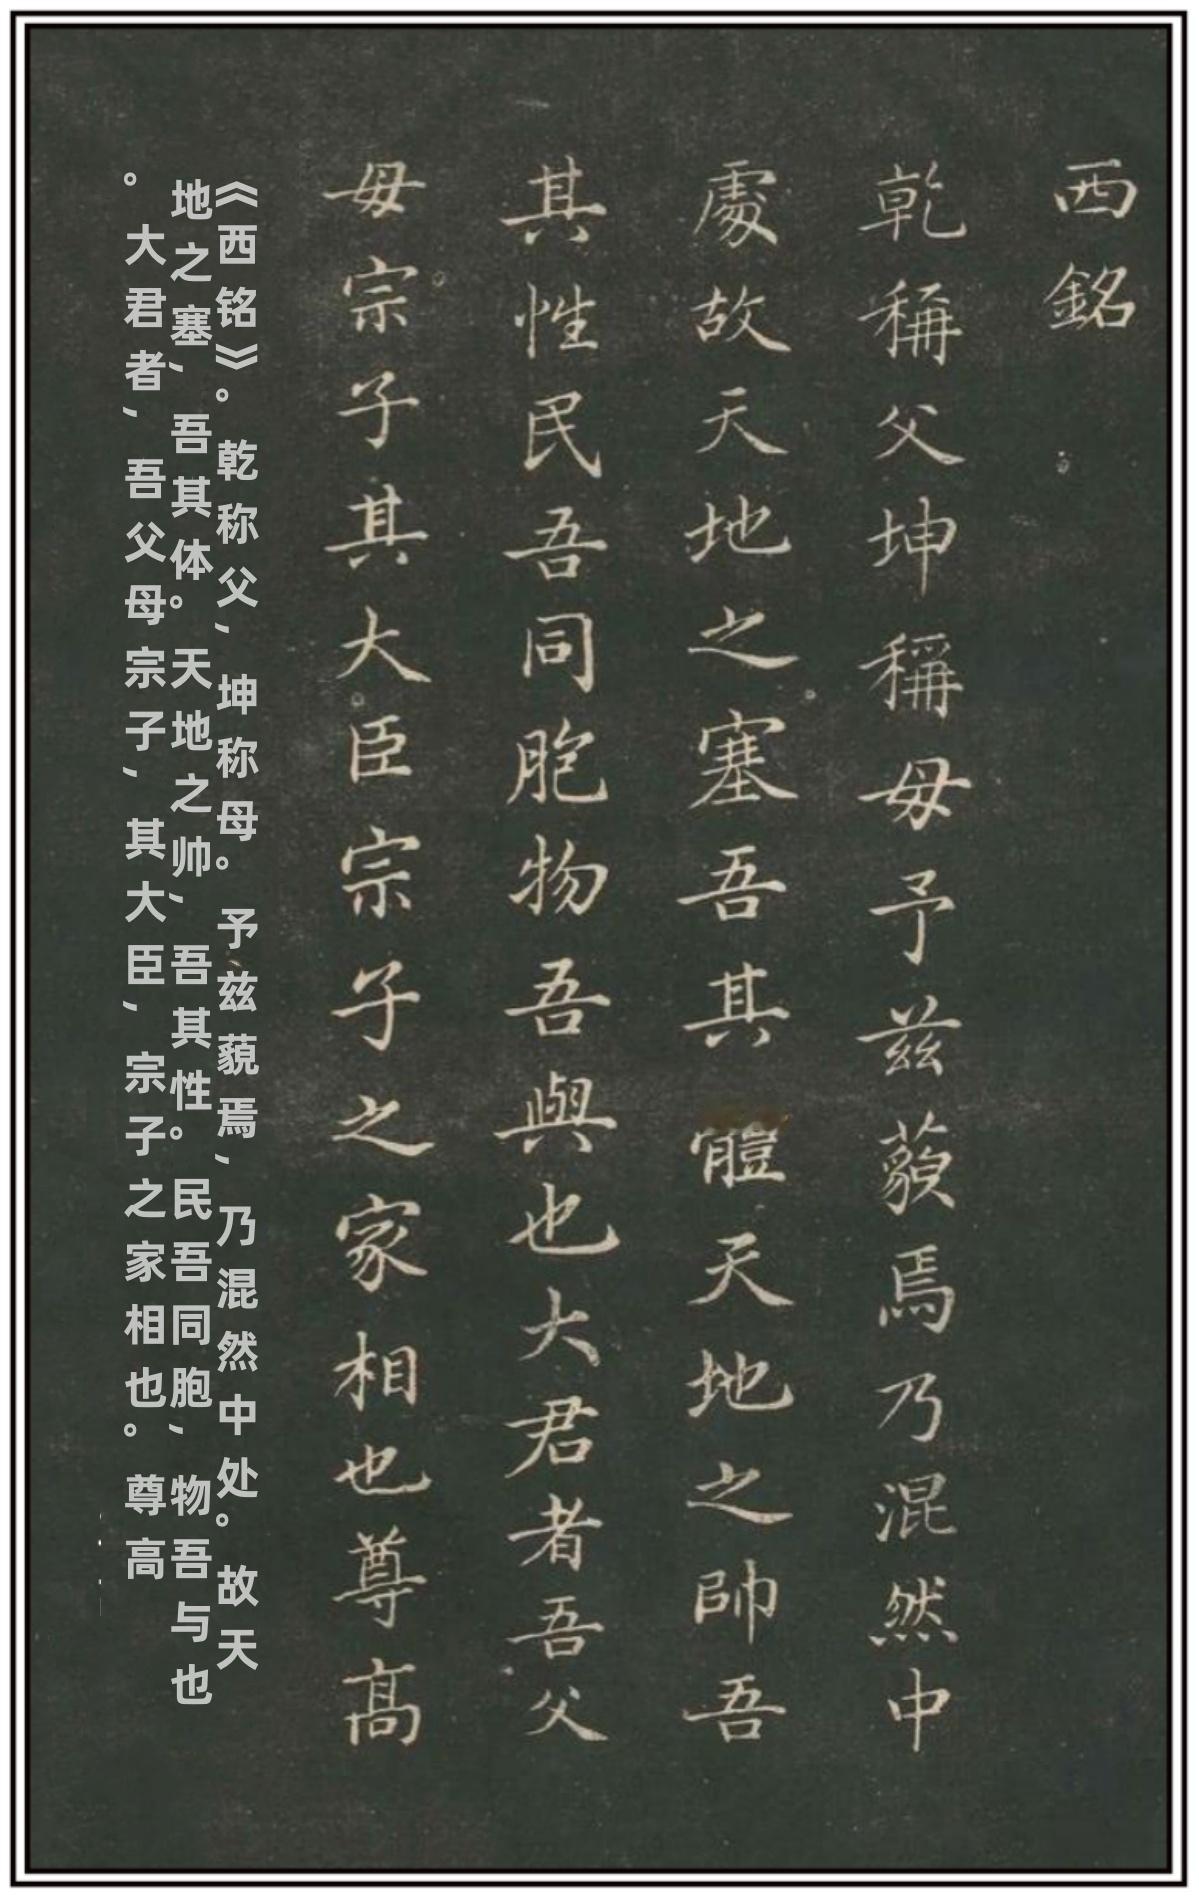 西銘
乾稱父坤稱母予茲藐焉乃混然中
處故天地之塞吾其體天地之帥吾
其性民吾同胞物吾與也大君者吾父
母宗子其大臣宗子之家相也尊高
《西铭》。乾称父，坤称母。予兹藐焉，乃混然中处。故天
地之塞，吾其体。天地之帅，吾其性。民吾同胞，物吾与也
。大君者，吾父母宗子，其大臣，宗子之家相也。尊高